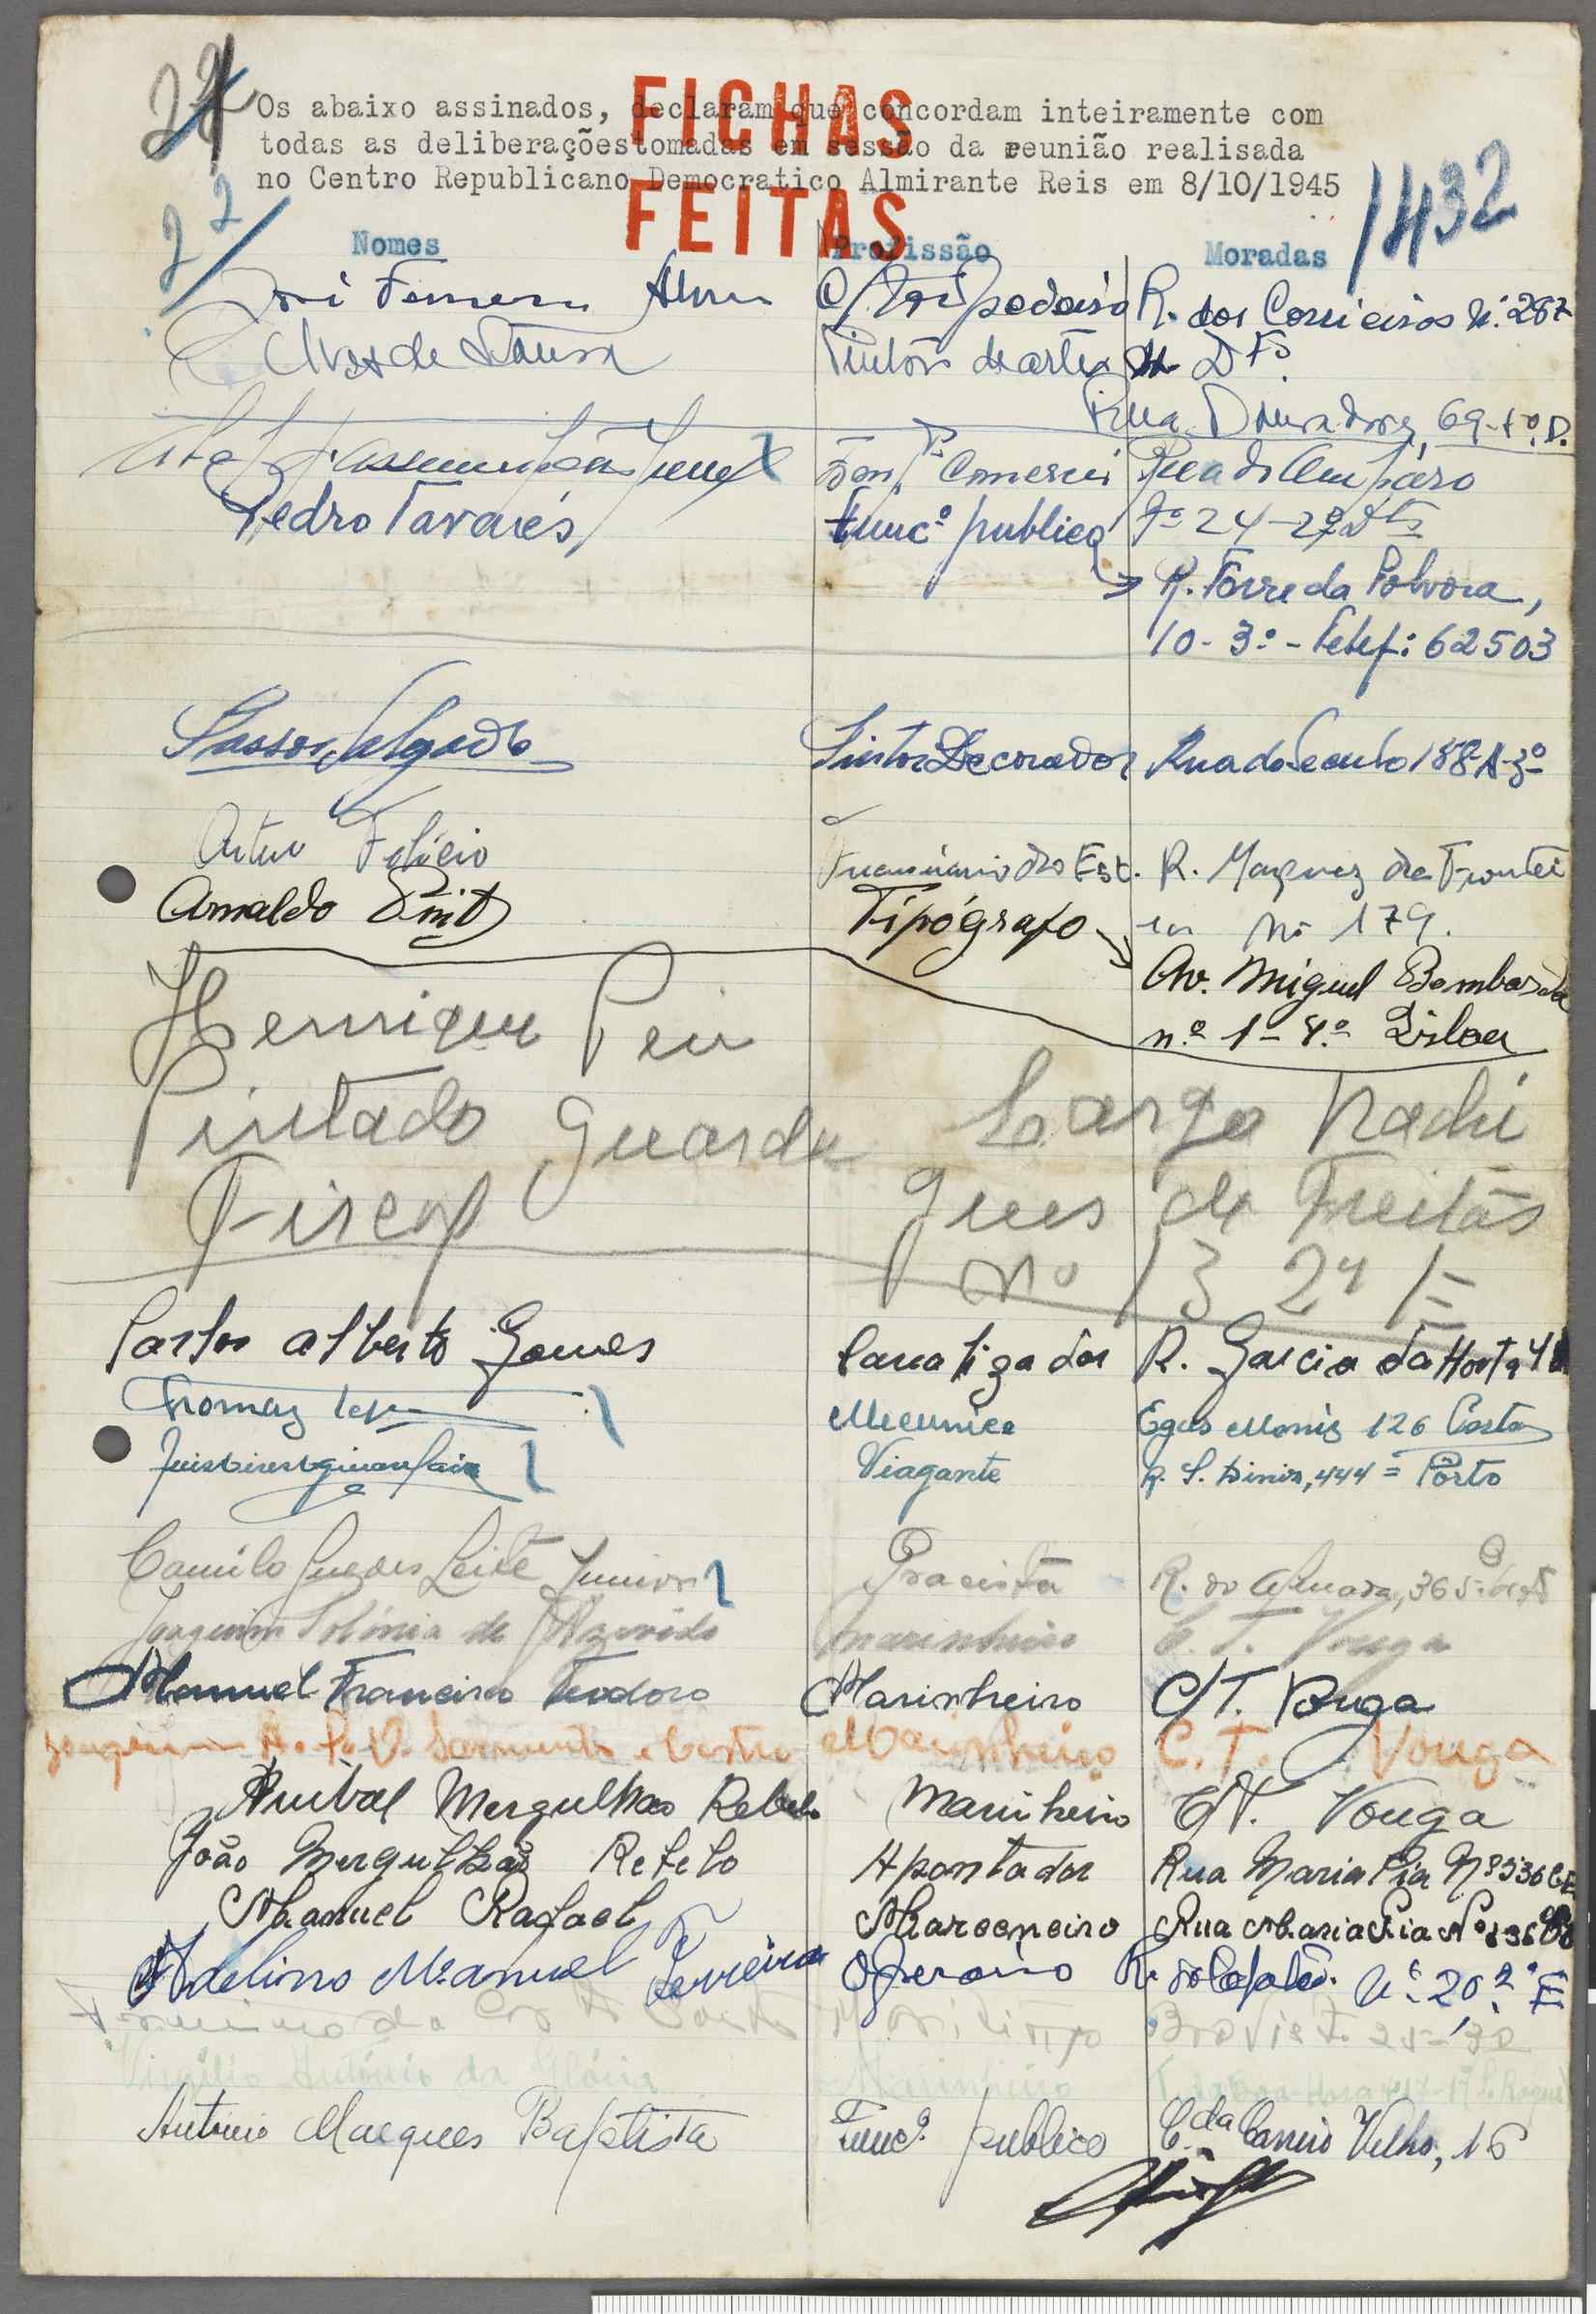 22
FICHAS
FEITAS
Os abaixo assinados, declaram que concordam inteiramente com
todas as deliberaçõestomadas em sessão da reunião realisada
no Centro Republicano Democratico Almirante Reis em 8/10/1945
1432
22
Nomes Profissão Moradas
R. dos Correeiros Nº 267
de Sousa Pintor de arte
Rua Douradores, 69-1º.D.
Comercio Rua do Amparo
Pedro Tavares, Funcº publico Nº 24-2º Dtº
R. Torre da Polvora,
10-3º-Telef: 62503
Passos Salgado Pintor Decorador Rua do Seculo 188-A-3º
Artur Felício Funcionario do Est. R. Marquez de Frontei
Arnaldo Tipógrafo ra Nº 179.
Av. Miguel Bombarda
n.º 1-8.º Lisboa
Henrique
Pintado Guarda Largo Rodri
Fiscal gues de Freitas
nº 13 2º
Carlos Alberto Gomes R. Garcia da Horta 4
Tromaz Mecunico Egas Moniz 126
Viagante R. S. Diniz, 444 = Porto
Camilo Guedes Leite Junior Pracista R. do Almada, 365
Joaquim Polónia de Azevedo marinheiro C. T. Vouga
Manuel Francisco Teodoro Marinheiro C/T. Vouga
Joaquim A. P. V. Sarmento e Castro Marinheiro C. T. Vouga
Anibal Mergulhao Rebelo Marinheiro C/T. Vouga
João Mergulhão Rebelo Apontador Rua Maria Pia Nº 536
Manuel Rafael Marceneiro Rua Maria Pia Nº 536
Adelino Manuel Ferreira Operario Nº 20, 2º E
da Maritimo
Virgílio António da Glória Marinheiro
Antonio Marques Baptista Funcº. publico C.da Carreiro Velho, 16